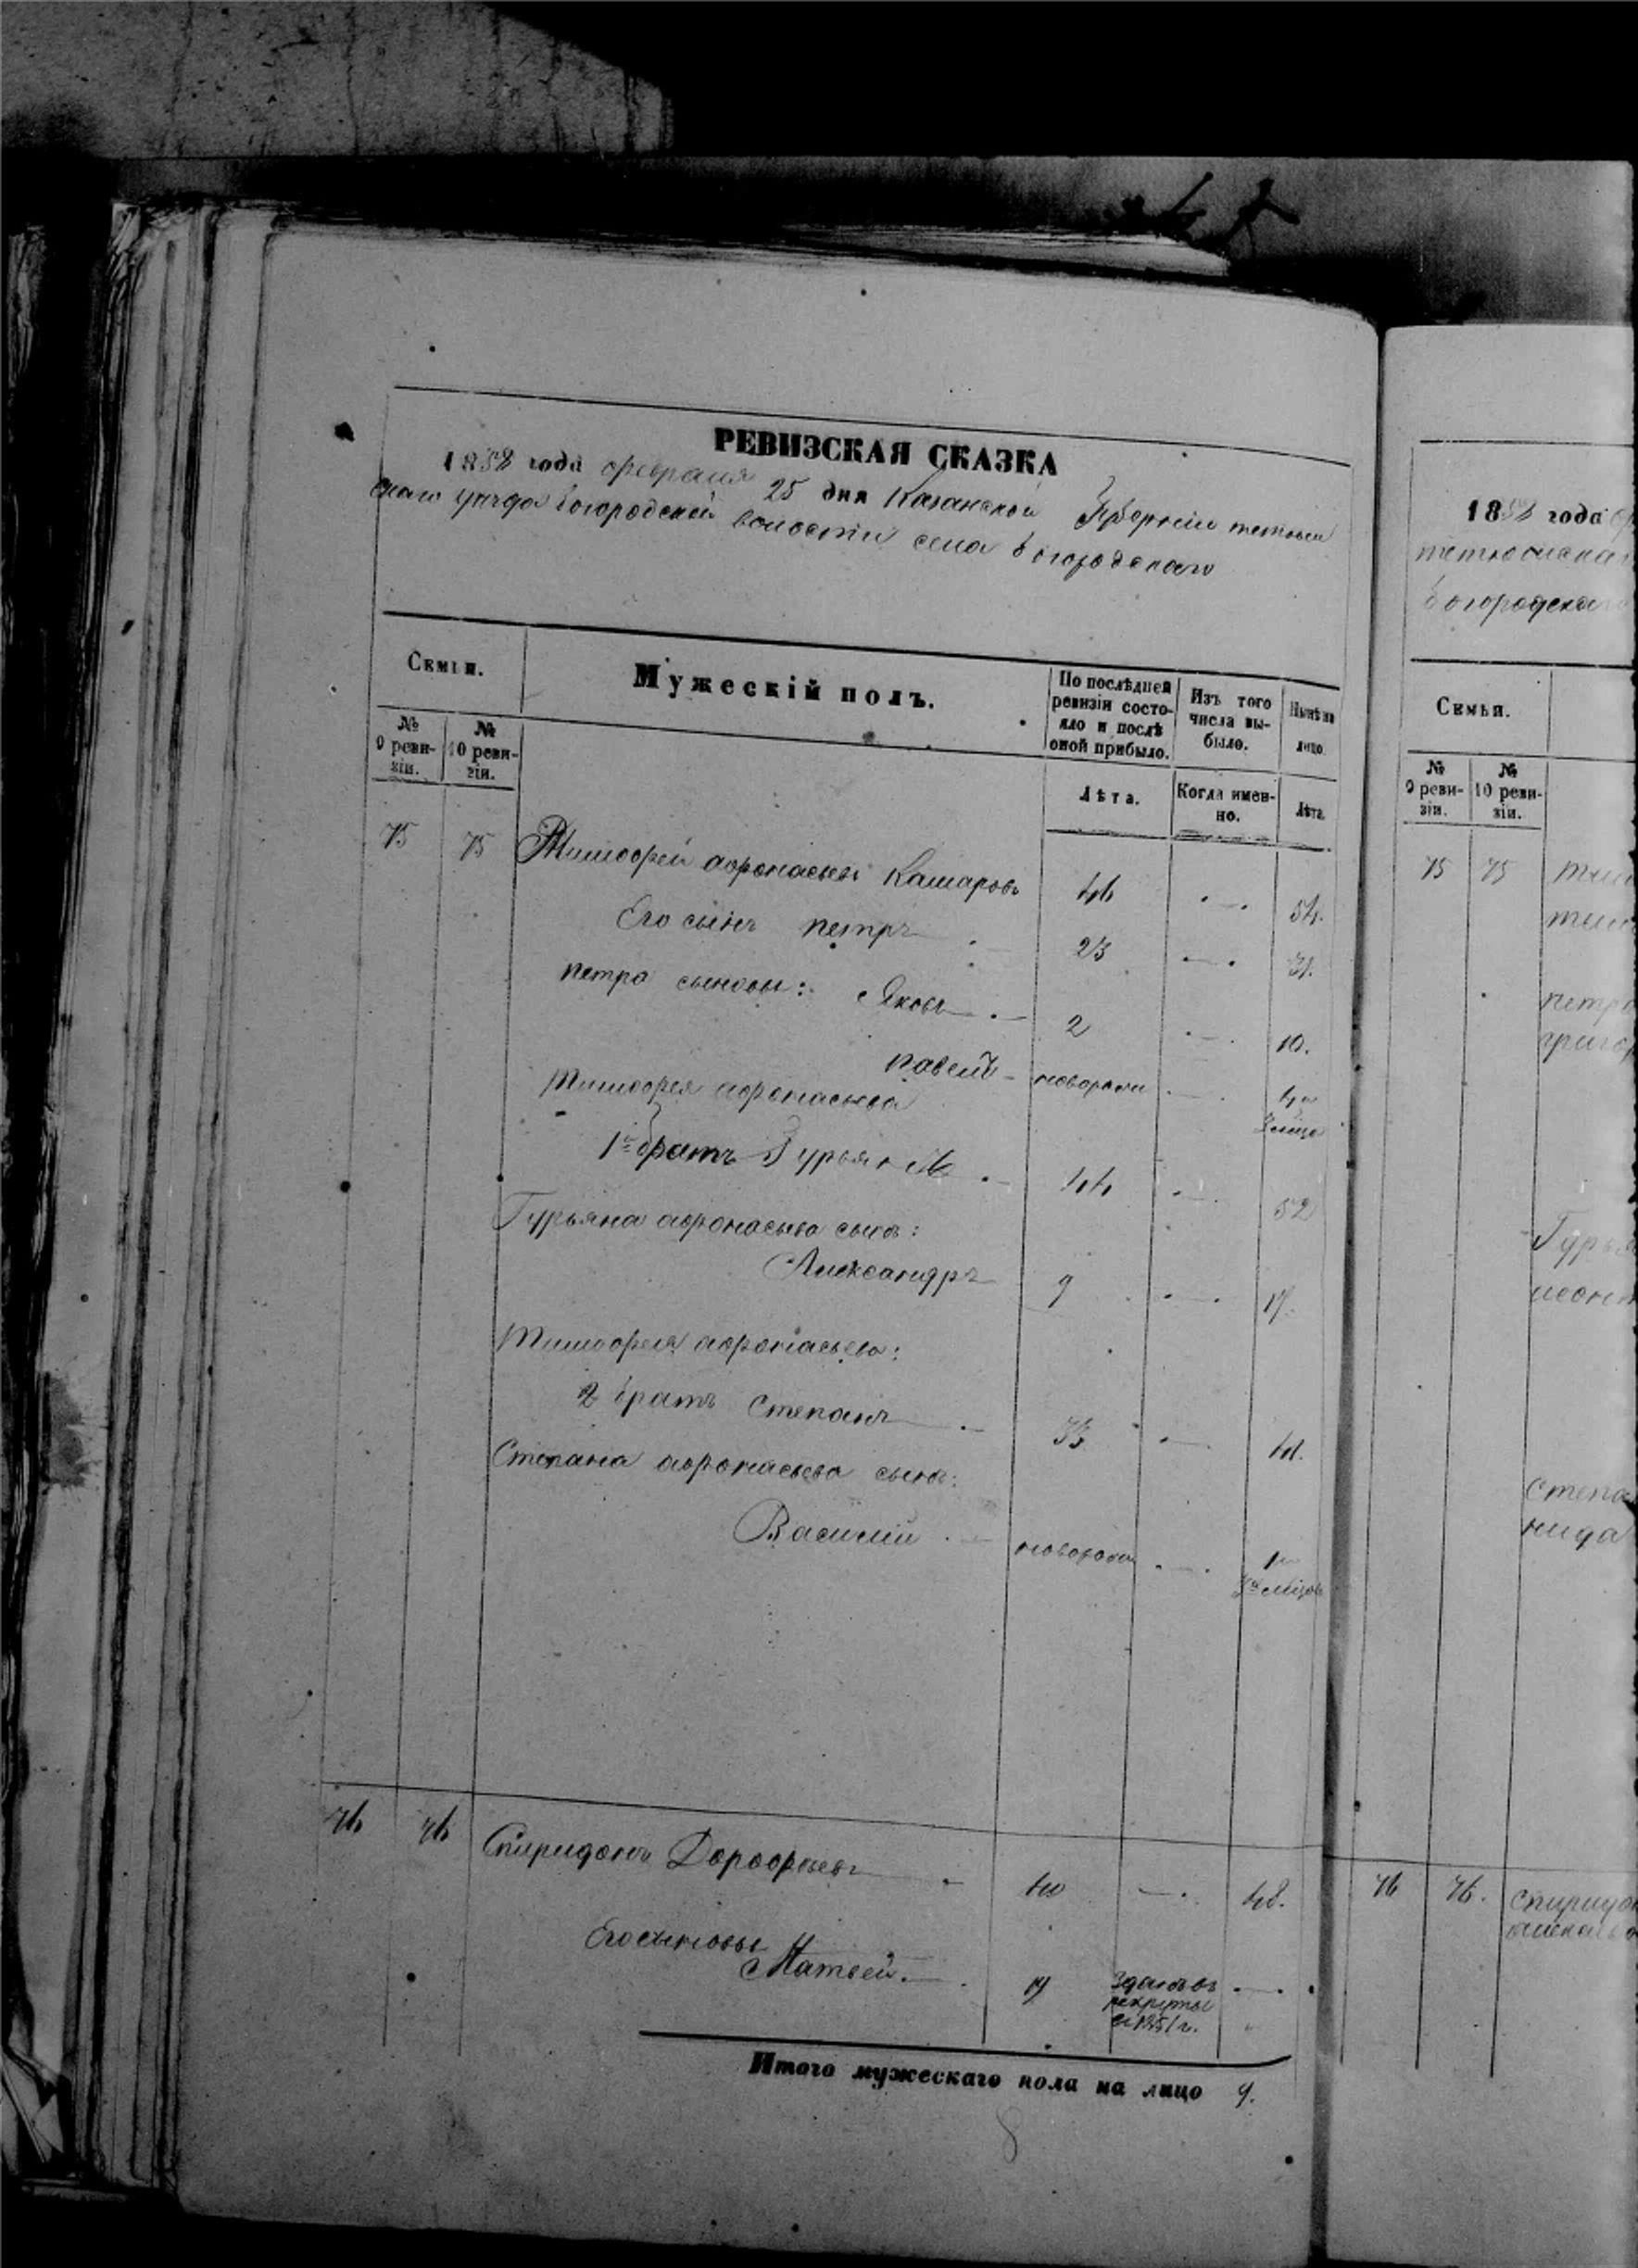 РЕВИЗСКАЯ СКАЗКА
1858 года февраля 25 дня Казанской Губерніи тетюш
скаго уезда богородской волости села богородскаго
Семьи.
Мужескій полъ.
По послѣдней ревизіи состо-
яло и послѣ
оной прибыло.
Изъ того
числа вы-
было.
Нынѣ на
лицо.
№
9 реви-
зіи.
№
10 реви-
зіи.
Лѣта.
Когда имен-
но.
Лѣта.
75 75 Тимофей афонасьевъ Кашаровъ 46 54.
Его сынъ петръ 23 31.
петра сыновья: Яковъ 2 10.
павелъ новорожн 4
Тимофея афонасьева
1й братъ Гурьян 44 52
Гурьяна афонасьева сынъ:
Александръ 9 17.
Тимофея афонасьева:
2 братъ Степанъ 33 41.
Степана афонасьева сынъ:
Василій новорожн 1
76 76 Спиридонъ Дорофеевъ 40 48.
Его сыновья
Матвей. 19 Зданъ въ
рекруты
в 1851 г.
Итого мужескаго пола на лицо 9.
8
1858 года
тетюшска
богородска
Семьи.
№
9 реви-
зіи.
№
10 реви-
зіи.
75 75
петра
Гурья
Степа
нида
76 76. Спиридо